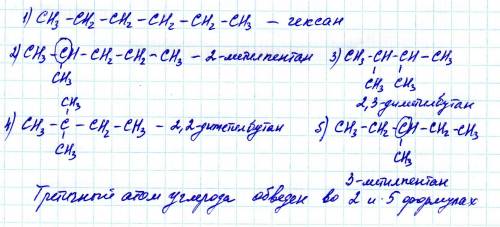 1) CH₃-CH₂-CH₂-CH₂-CH₂-CH₃ - гексан
2) CH₃-CH-CH₂-CH₂-CH₃ - 2-метилпентан 3) CH₃-CH-CH-CH₃
CH₃ CH₃ CH₃
2,3-диметилбутан
CH₃
4) CH₃-C-CH₂-CH₃ - 2,2-диметилбутан 5) CH₃-CH₂-CH-CH₂-CH₃
CH₃ CH₃
3-метилпентан
Третичный атом углерода обведен во 2 и 5 формулах